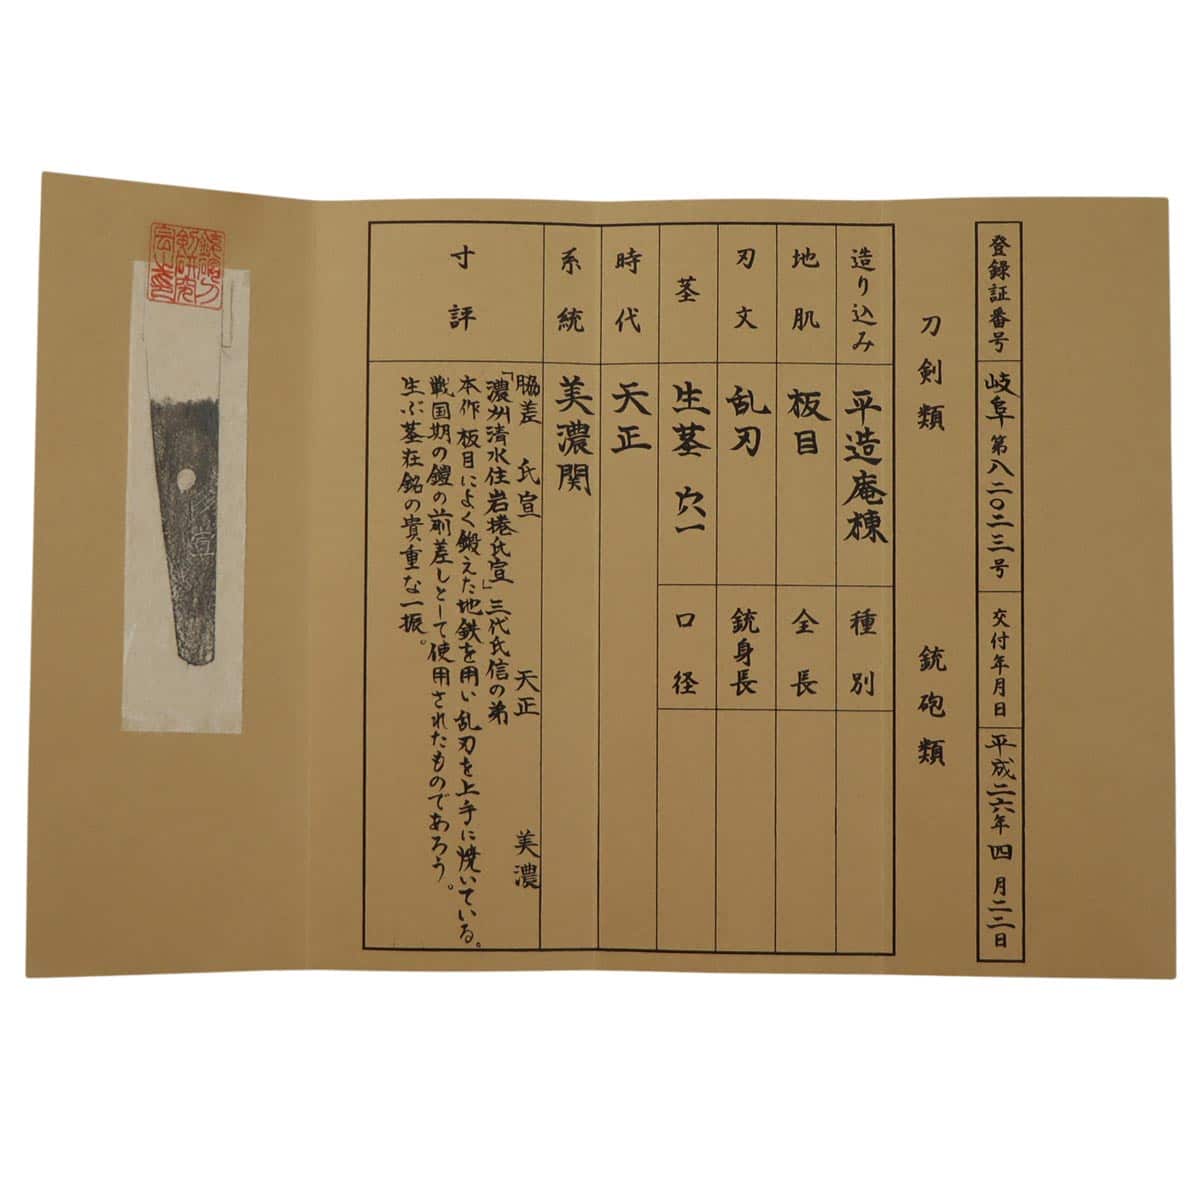 登録証番号 岐阜 第八二〇二三号 交付年月日 平成二六年四月二二日
刀剣類 銃砲類
造り込み 平造庵棟 種別
地肌 板目 全長
刃文 乱刃 銃身長
茎 生茎 穴一 口径
時代 天正
系統 美濃関
寸評
脇差 氏宣 天正 美濃
「濃州清水住岩捲氏宣」三代氏信の弟
本作板目によく鍛えた地鉄を用い乱刃を上手に焼いている。
戦国期の鎧の前差しとして使用されたものであろう。
生ぶ茎在銘の貴重な一振。
宣